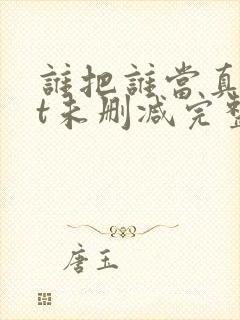 誰把誰當真
t未删减完整
唐玉